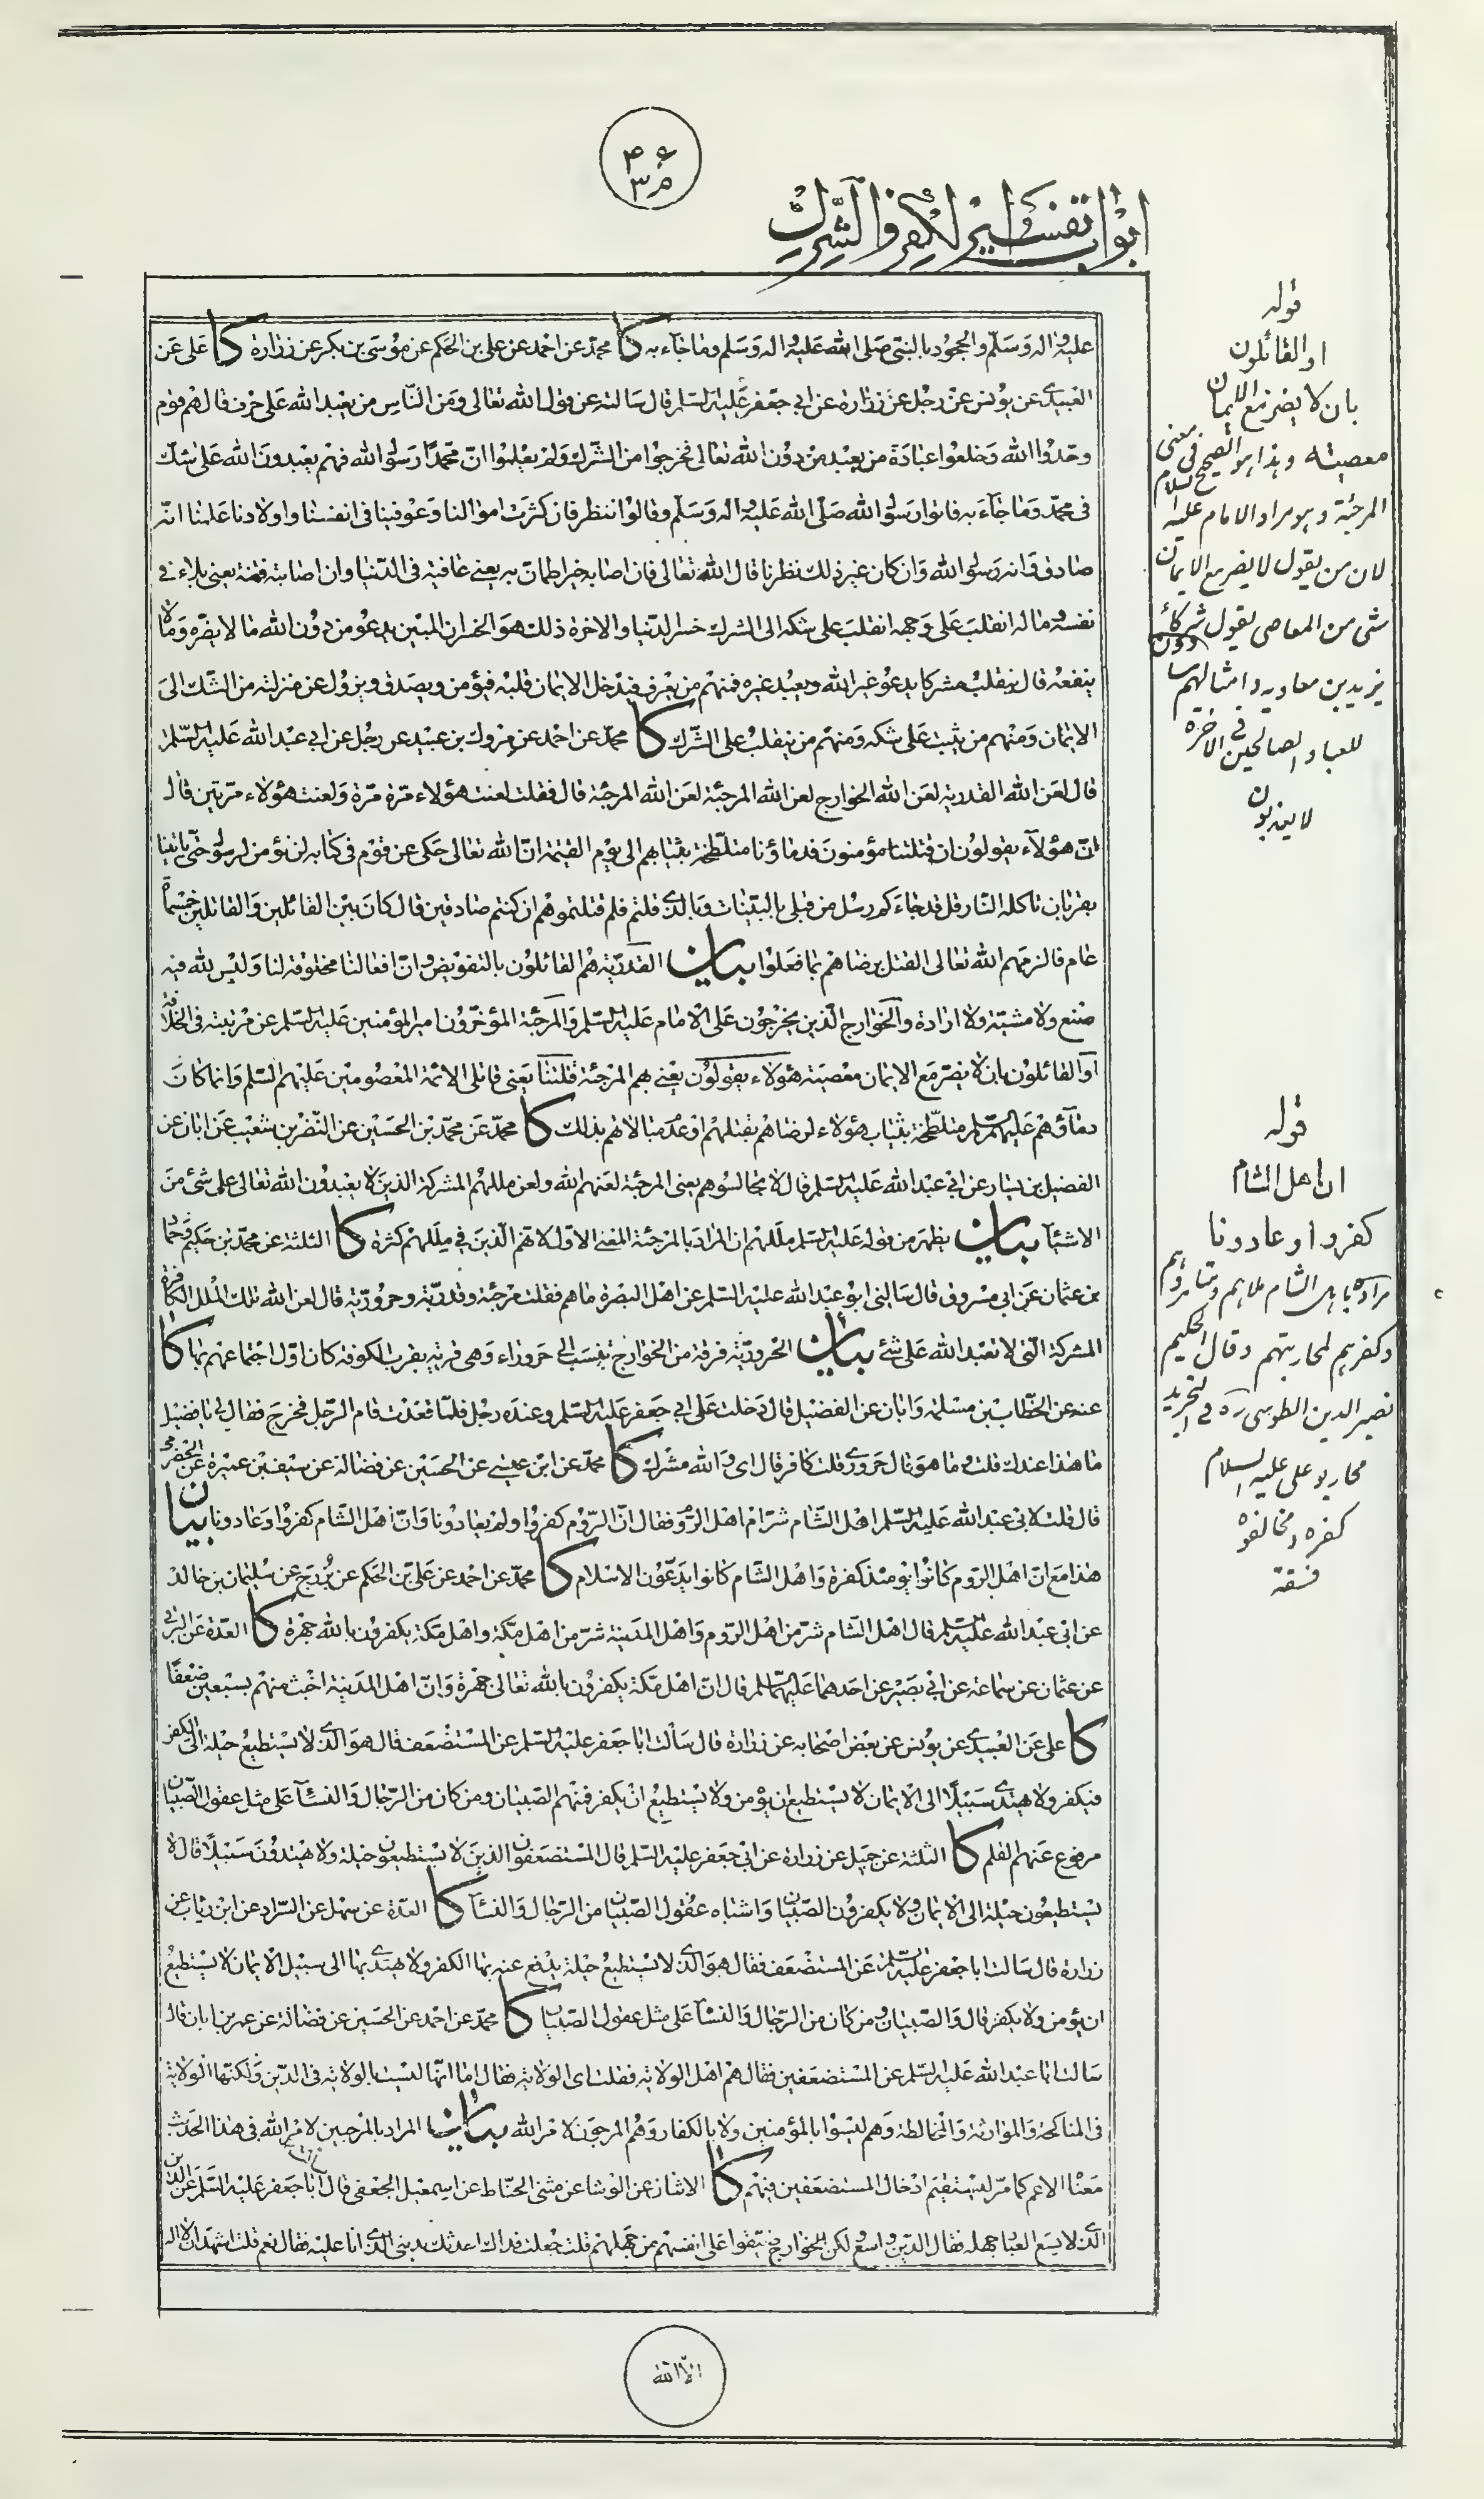 ابواب تفسير الكفر والشرك
عليه واله وسلم والجحود بالنبي صلى الله عليه واله وسلم وما جاء به كا محمد عن احمد عن علي بن الحكم عن موسى بن بكر عن زرارة كا علي عن
العبيدي عن يونس عن رجل عن زرارة عن ابي جعفر عليه السلم قال سالته عن قول الله تعالى ومن الناس من يعبد الله على حرف قال هم قوم
وحدوا الله وخلعوا عبادة من يعبد من دون الله تعالى فخرجوا من الشرك ولم يعلموا ان محمدا رسول الله فهم يعبدون الله على شك
في محمد وما جاء به فاتوا رسول الله صلى الله عليه واله وسلم وقالوا ننظر فان كثرت اموالنا وعوفينا في انفسنا واولادنا علمنا انه
صادق وانه رسول الله وان كان غير ذلك نظرنا قال الله تعالى فان اصابه خير اطمان به يعني عافية في الدنيا وان اصابته فتنة يعني بلاء في
نفسه وماله انقلب على وجهه انقلب على شكه الى الشرك خسر الدنيا والاخرة ذلك هو الخسران المبين يدعو من دون الله ما لا يضره وما لا
ينفعه قال ينقلب مشركا يدعو غير الله ويعبد غيره فمنهم من يعرف فيدخل الايمان قلبه فيؤمن ويصدق ويزول عن منزلته من الشك الى
الايمان ومنهم من يثبت على شكه ومنهم من ينقلب على الشرك كا محمد عن احمد عن مروك بن عبيد عن رجل عن ابي عبد الله عليه السلم
قال لعن الله القدرية لعن الله الخوارج لعن الله المرجئة لعن الله المرجئة قال فقلت لعنت هؤلاء مرة مرة ولعنت هؤلاء مرتين قال
ان هؤلاء يقولون ان قتلتنا مؤمنون فدماؤنا متلطخة بثيابهم الى يوم القيمة ان الله تعالى حكى عن قوم في كتابه لن نؤمن لرسول حتى ياتينا
بقربان تاكله النار قل قد جاءكم رسل من قبلي بالبينات وبالذي قلتم فلم قتلتموهم ان كنتم صادقين قال كان بين القائلين والقاتلين خمسمأة
عام فالزمهم الله تعالى القتل برضاهم بما فعلوا بيان القدرية هم القائلون بالتفويض وان افعالنا مخلوقة لنا وليس لله فيه
صنع ولا مشية ولا ارادة والخوارج الذين يخرجون على الامام عليه السلم والمرجئة المؤخرون امير المؤمنين عليه السلم عن مرتبته في الخلافة
او القائلون بان لا يضر مع الايمان معصية هؤلاء يقولون يعني بهم المرجئة قتلتنا يعني قاتلي الائمة المعصومين عليهم السلم وانما كانت
دماؤهم عليهم السلم متلطخة بثياب هؤلاء لرضاهم بقتلهم او عدم مبالاتهم بذلك كا محمد عن محمد بن الحسين عن النضر بن شعيب عن ابان عن
الفضيل بن يسار عن ابي عبد الله عليه السلم قال لا تجالسوهم يعني المرجئة لعنهم الله ولعن مللهم المشركة الذين لا يعبدون الله تعالى على شئ من
الاشيآ بيان يظهر من قوله عليه السلم مللهم ان المراد بالمرجئة المعنى الاول لانهم الذين في مللهم كثرة كا الثلثة عن محمد بن حكيم وحماد
بن عثمان عن ابي مسروق قال سالني ابو عبد الله عليه السلم عن اهل البصرة ما هم فقلت مرجئة وقدرية وحرورية قال لعن الله تلك الملل الكافرة
المشركة التي لا تعبد الله على شئ بيان الحرورية فرقة من الخوارج تنسب الى حروراء وهي قرية بقرب الكوفة كان اول اجتماعهم بها كا
عنه عن الخطاب بن مسلمة وابان عن الفضيل قال دخلت على ابي جعفر عليه السلم وعنده رجل فلما قعدت قام الرجل فخرج فقال لي يا فضيل
ما هذا عندك قلت وما هو قال حروري قلت كافر قال اي والله مشرك كا محمد عن ابن عيسى عن الحسين عن فضالة عن سيف بن عميرة عن الحضرمي
قال قلت لابي عبد الله عليه السلم اهل الشام شر ام اهل الروم فقال ان الروم كفروا ولم يعادونا وان اهل الشام كفروا وعادونا بيان
هذا مع ان اهل الروم كانوا يومئذ كفرة واهل الشام كانوا يدعون الاسلام كا محمد عن احمد عن علي بن الحكم عن بزرج عن سليمان بن خالد
عن ابي عبد الله عليه السلم قال اهل الشام شر من اهل الروم واهل المدينة شر من اهل مكة واهل مكة يكفرون بالله جهرة كا العدة عن البرقي
عن عثمان عن سماعة عن ابي بصير عن احدهما عليهما السلم قال ان اهل مكة يكفرون بالله تعالى جهرة وان اهل المدينة اخبث منهم بسبعين ضعفا
كا علي عن العبيدي عن يونس عن بعض اصحابه عن زرارة قال سالت ابا جعفر عليه السلم عن المستضعف قال هو الذي لا يستطيع حيلة الى الكفر
فيكفر ولا يهتدي سبيلا الى الايمان لا يستطيع ان يؤمن ولا يستطيع ان يكفر فمنهم الصبيان ومن كان من الرجال والنسآ على مثل عقول الصبيان
مرفوع عنهم القلم كا الثلثة عن جميل عن زرارة عن ابي جعفر عليه السلم قال المستضعفون الذين لا يستطيعون حيلة ولا يهتدون سبيلا قال لا
يستطيعون حيلة الى الايمان ولا يكفرون الصبيان واشباه عقول الصبيان من الرجال والنسآ كا العدة عن سهل عن السراد عن ابن رئاب عن
زرارة قال سالت ابا جعفر عليه السلم عن المستضعف فقال هو الذي لا يستطيع حيلة يدفع عنه بها الكفر ولا يهتدي بها الى سبيل الايمان لا يستطيع
ان يؤمن ولا يكفر قال والصبيان ومن كان من الرجال والنسآ على مثل عقول الصبيان كا محمد عن احمد عن الحسين عن فضالة عن عمر بن ابان قال
سالت ابا عبد الله عليه السلم عن المستضعفين فقال هم اهل الولاية فقلت اي الولاية فقال اما انها ليست بالولاية في الدين ولكنها الولاية
في المناكحة والموارثة والمخالطة وهم ليسوا بالمؤمنين ولا بالكفار وهم المرجون لامر الله بيان المراد بالمرجين لامر الله في هذا الحديث
معناه الاعم كما مر ليستقيم ادخال المستضعفين فيهم كا الاثنان عن الوشا عن مثنى الحناط عن اسمعيل الجعفي قال سالت ابا جعفر عليه السلم عن الدين
الذي لا يسع العباد جهله فقال الدين واسع لكن الخوارج ضيقوا على انفسهم من جهلهم قلت جعلت فداك احدثك بديني الذي انا عليه فقال نعم قلت اشهد ان لا اله
الا الله
قوله
او القائلون
بان لا يضر مع الايمان
معصيته وهذا هو الصحيح في معنى
المرجئة وهو مراد الامام عليه السلام
لان من يقول لا يضر مع الايمان
شئ من المعاصي يقول شركاء دون
يزيد بن معاويه وامثالهم
للعباد الصالحين في الاخرة
لا يعذبون
قوله
ان اهل الشام
كفروا وعادونا
مراده باهل الشام
وكفرهم لمحاربتهم وقال الحكيم
نصير الدين الطوسي ره في التجريد
محاربو علي عليه السلام
كفرة ومخالفوه
فسقة